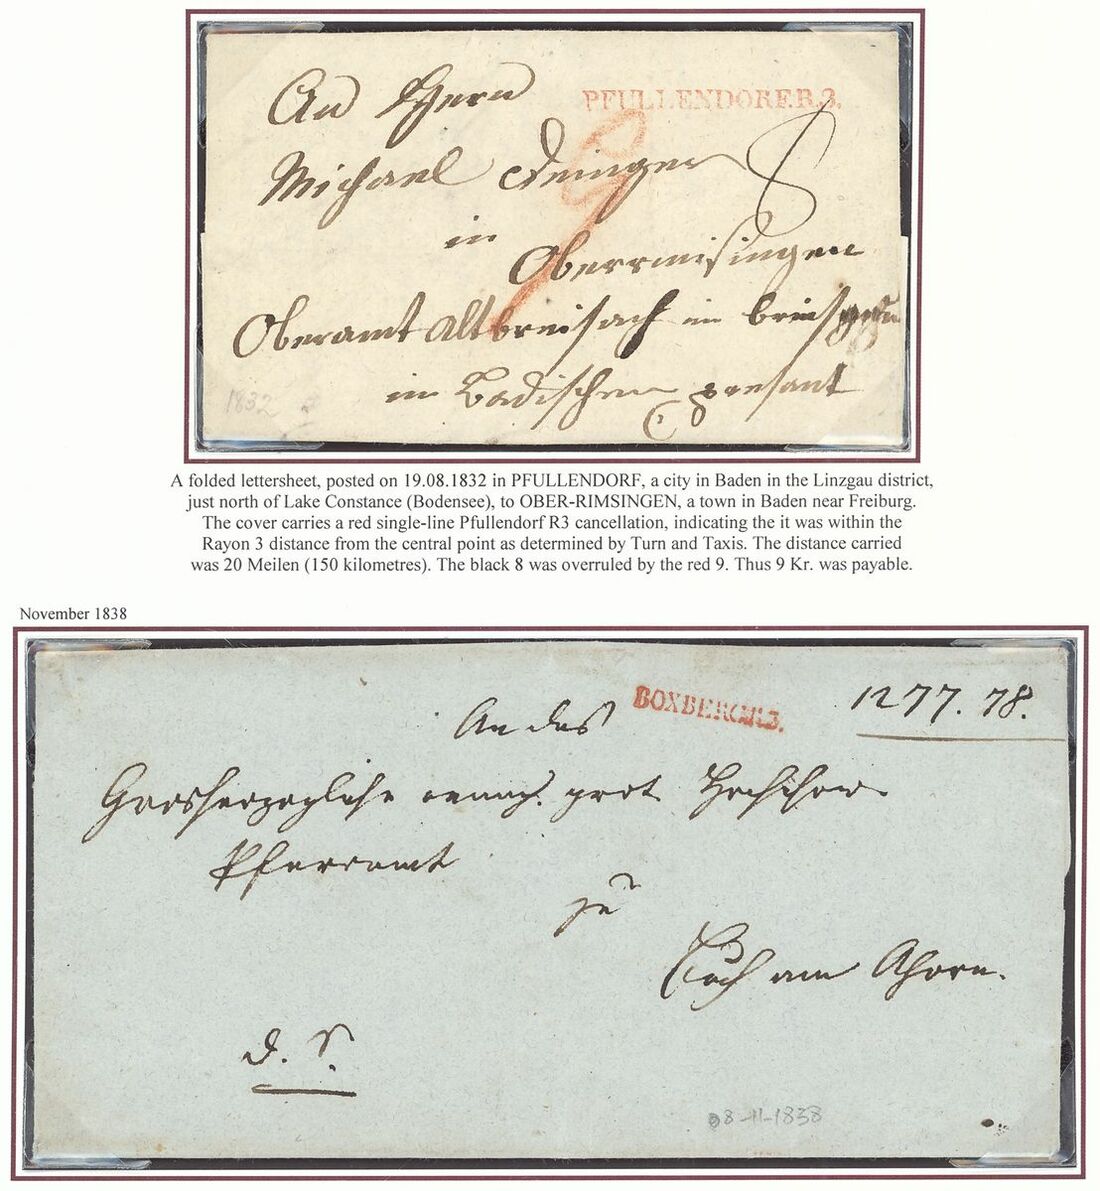 PFULLENDORF.R.3.
An Herrn
8
9
Michael
in
Oberrmisingen
Oberamt Altbreisach im
im Badischen
1832
A folded lettersheet, posted on 19.08.1832 in PFULLENDORF, a city in Baden in the Linzgau district,
just north of Lake Constance (Bodensee), to OBER-RIMSINGEN, a town in Baden near Freiburg.
The cover carries a red single-line Pfullendorf R3 cancellation, indicating the it was within the
Rayon 3 distance from the central point as determined by Turn and Taxis. The distance carried
was 20 Meilen (150 kilometres). The black 8 was overruled by the red 9. Thus 9 Kr. was payable.
November 1838
BOXBERG.R.3.
1277.78.
An das
Grosherzogliche evang. prot.
Pfarramt
zu
Buch am Ahorn.
d. S.
08-11-1838